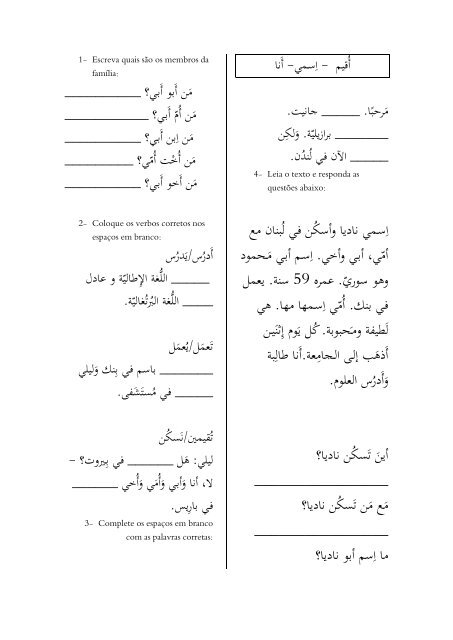 1- Escreva quais são os membros da
família:
مَن أَبو أَبي؟ ______________
مَن أُمّ أَبي؟ ______________
مَن اِبن أَبي؟ ______________
مَن أُخْت أُمّي؟ ____________
مَن أَخو أَبي؟ ______________
2- Coloque os verbos corretos nos
espaços em branco:
أَدرُس/يَدرُس
_______ اللُّغة الإطاليّة و عادل
_____ اللُّغة البُرتُغاليّة.
تَعمَل/يُعمَل
_________ باسم في بِنك وَليلي
______ في مُستَشَفى.
تُقيمين/نَسكُن
ليلي: هَل _______ في بِيروت؟ –
لا، أنا وَأبي وَأُمَي وَأُخي _______
في باريس.
3- Complete os espaços em branco
com as palavras corretas:
أُقيم – اِسمي– أَنا
مَرحبًا. ______ جانيت.
_________ برازيليّة. وَلكِن
______ الآن في لُندُن.
4- Leia o texto e responda as
questões abaixo:
اِسمي ناديا وأسكُن في لُبنان مع
أمّي، أبي وأخي. اِسم أبي مَحمود
وهو سوريّ. عمره 59 سنة. يعمل
في بنك. أُمّي اِسمها مها. هي
لَطيفة ومَحبوبة. كُل يَوم إِثنَين
أَذهَب إلى الجامِعة.أَنا طالِبة
وَأَدرُس العلوم.
أينَ تَسكُن ناديا؟
______________________
مَع مَن تَسكُن ناديا؟
______________________
ما اِسم أبو ناديا؟